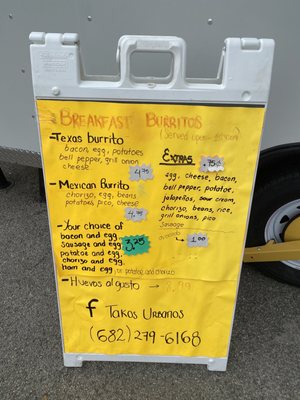 Breakfast Burritos
(Served
- Texas burrito
bacon, egg, potatoes
bell pepper, grill onion
cheese
4.75
- Mexican Burrito
chorizo, egg, beans
potatoes, pico, cheese
4.75
- Your choice of
bacon and egg.
Sausage and egg.
potatoe and egg.
chorizo and egg.
ham and egg, or potatoe, and chorizo
3.25
- Huevos al gusto
8.99
Extras
.75¢
egg, cheese, bacon,
bell pepper, potatoe,
jalapeños, sour cream,
chorizo, beans, rice,
grill onions, pico
Sausage
avocado
1.00
f Takos Urbanos
(682) 279-6168